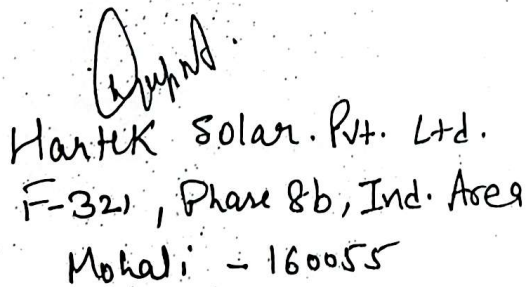 Hartek Solar. Pvt. Ltd.
F-321, Phase 8b, Ind. Area
Mohali - 160055